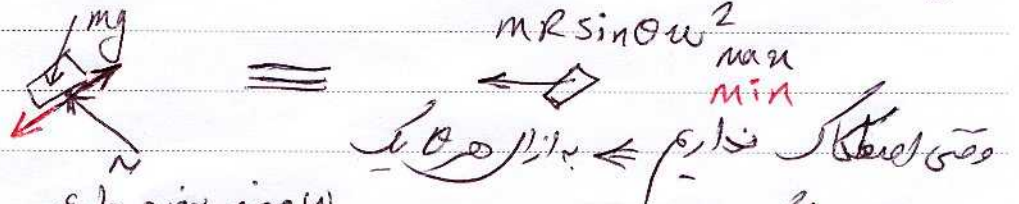 mg
≡ mR sinθ ω²
max
min
N
وقتی اصطکاک نداریم ⇐ به ازای هر θ یک